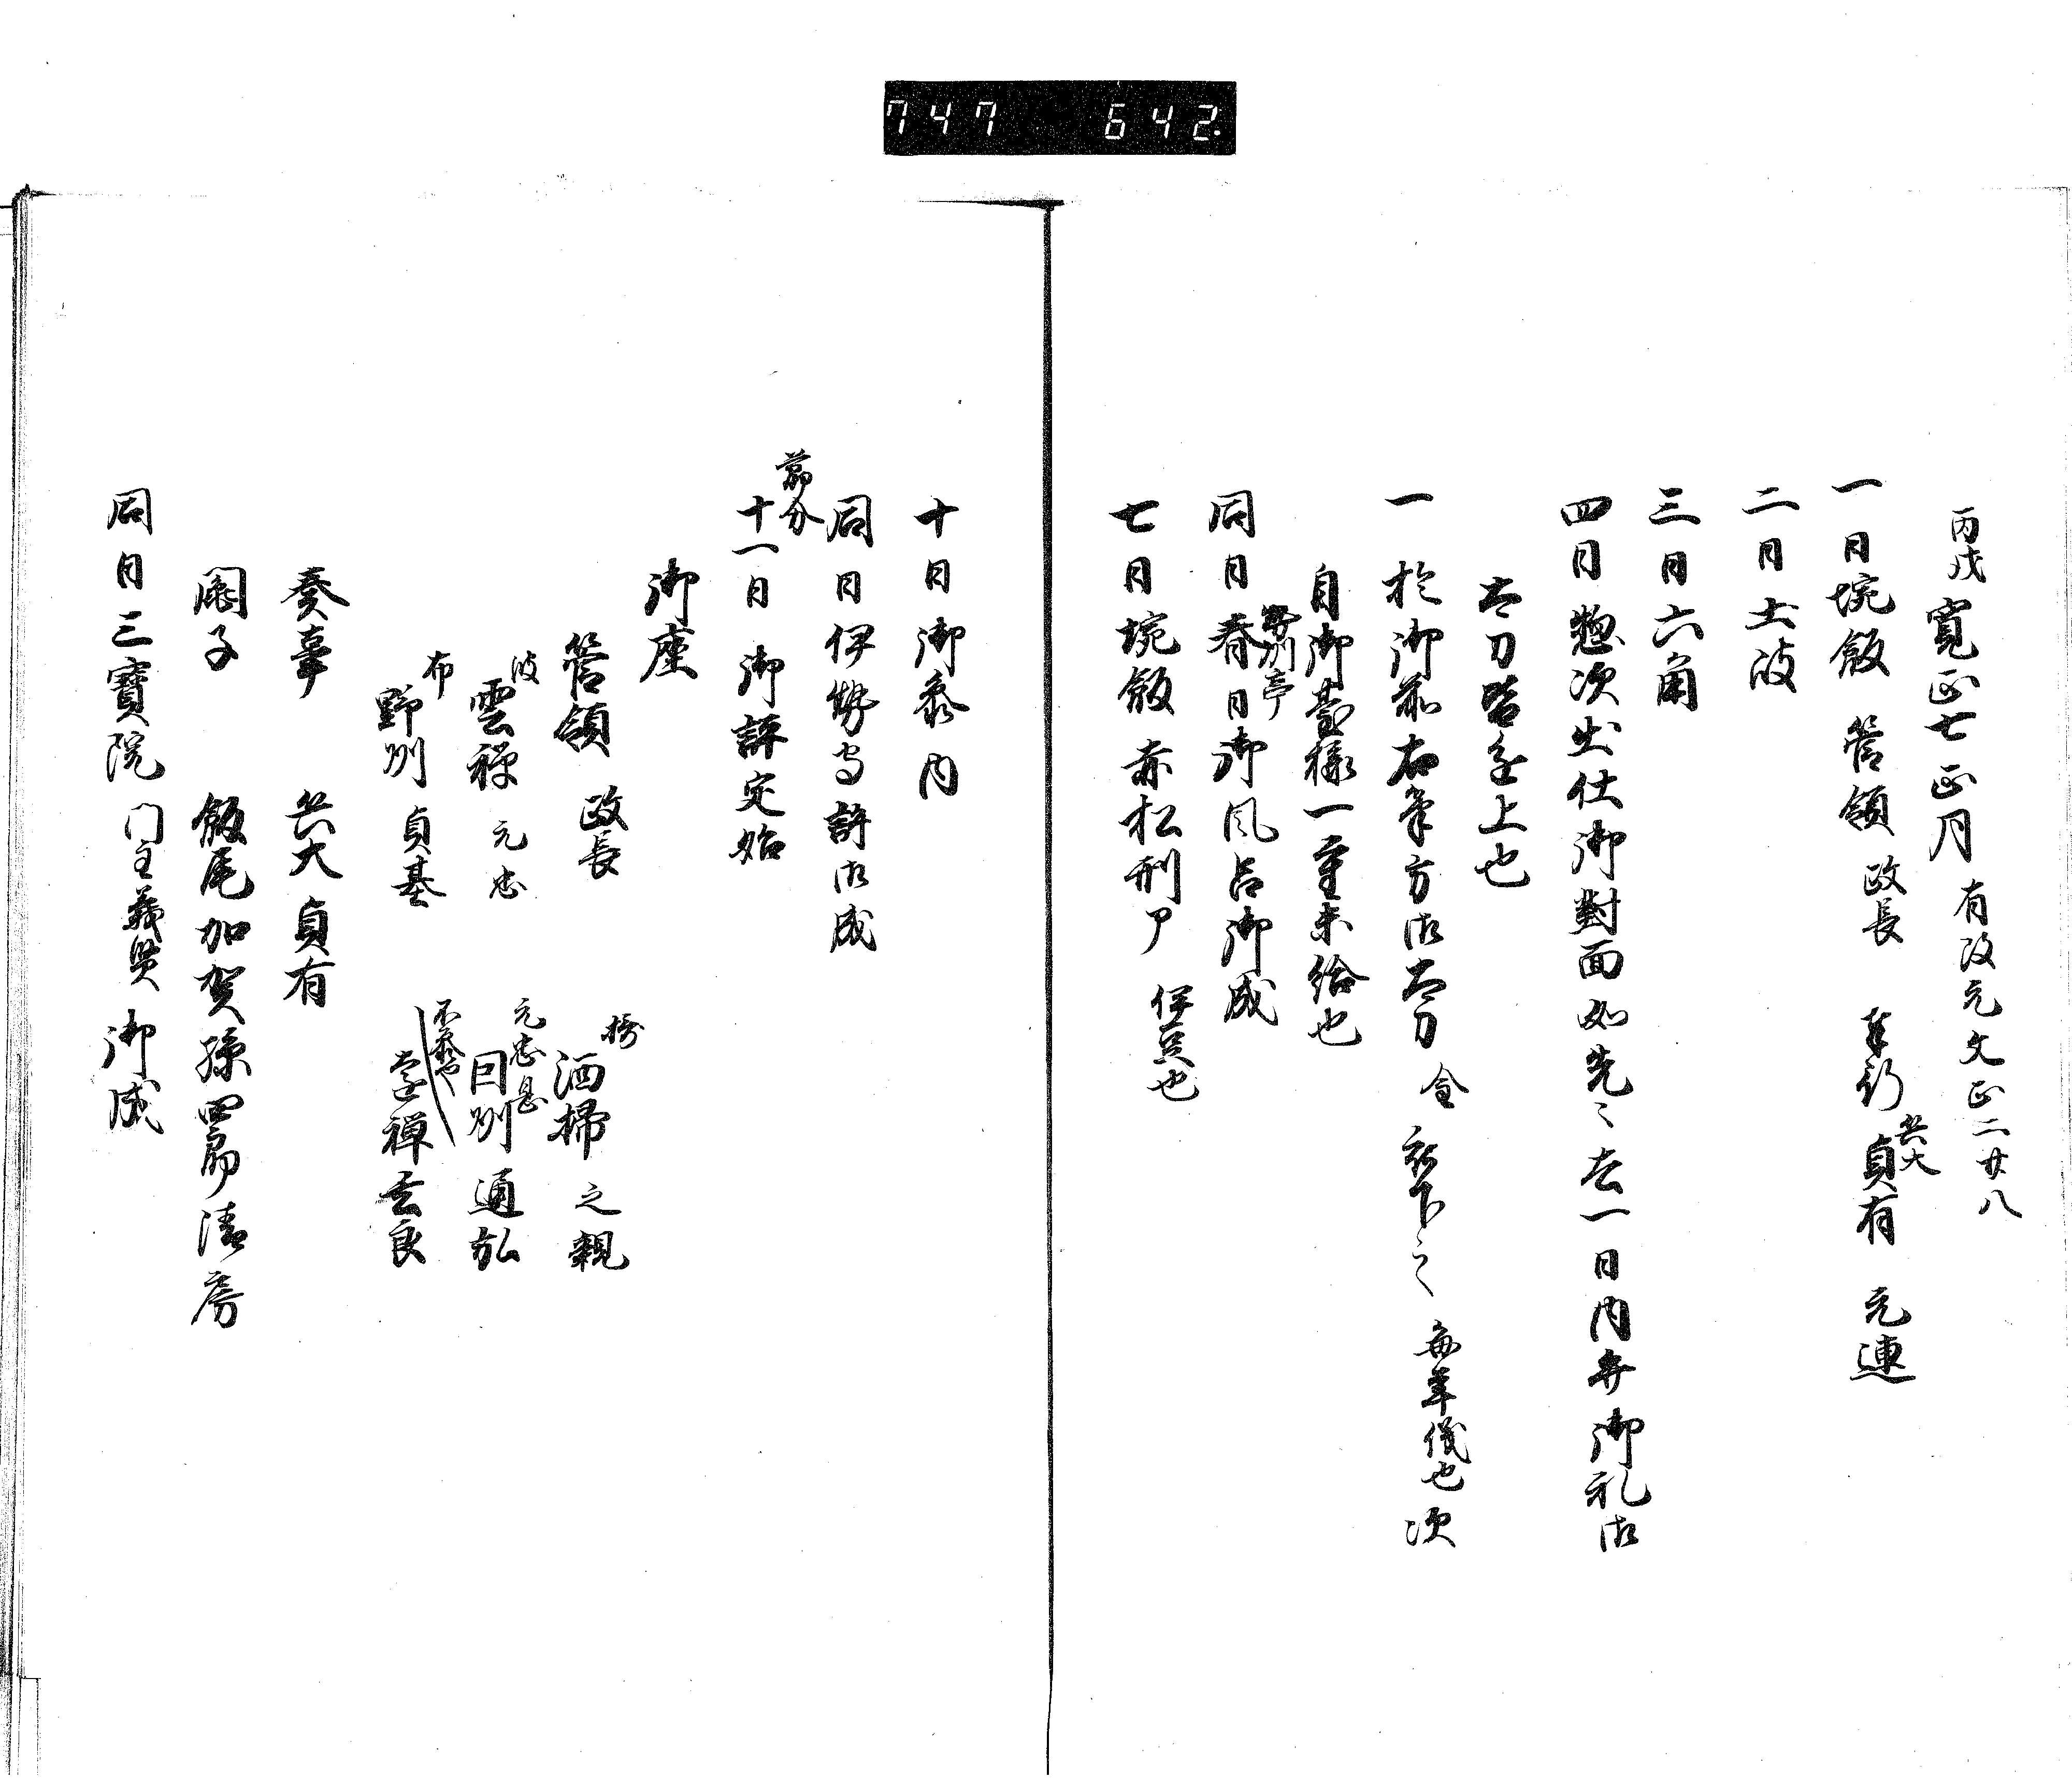 747 642.
丙戌 寛正七 正月 有改元文正二廿八
一日 埦飯 管領 政長 奉行 貞有 元連
共大
二日 土岐
三日 六角
四日 惣次出仕御對面如先〻去一日内弁御礼御
太刀皆進上也
一 於御前右筆方御太刀 金 被下之 毎年儀也 次
自御臺様一重来給也
同日 春日御風呂御成
勢州亭
七日 埦飯 赤松刑ア 伊豆也
十日 御参内
同日 伊勢守許御成
節分
十一日 御評定始
御座
管領 政長
摂
洒掃 之親
波
雲禅 元忠
元忠息
因州 通弘
布
野州 貞基
不参也
善禅 玄良
奏事 共大 貞有
圖子 飯尾加賀孫四郎清房
同日 三寶院 门主義賢 御成